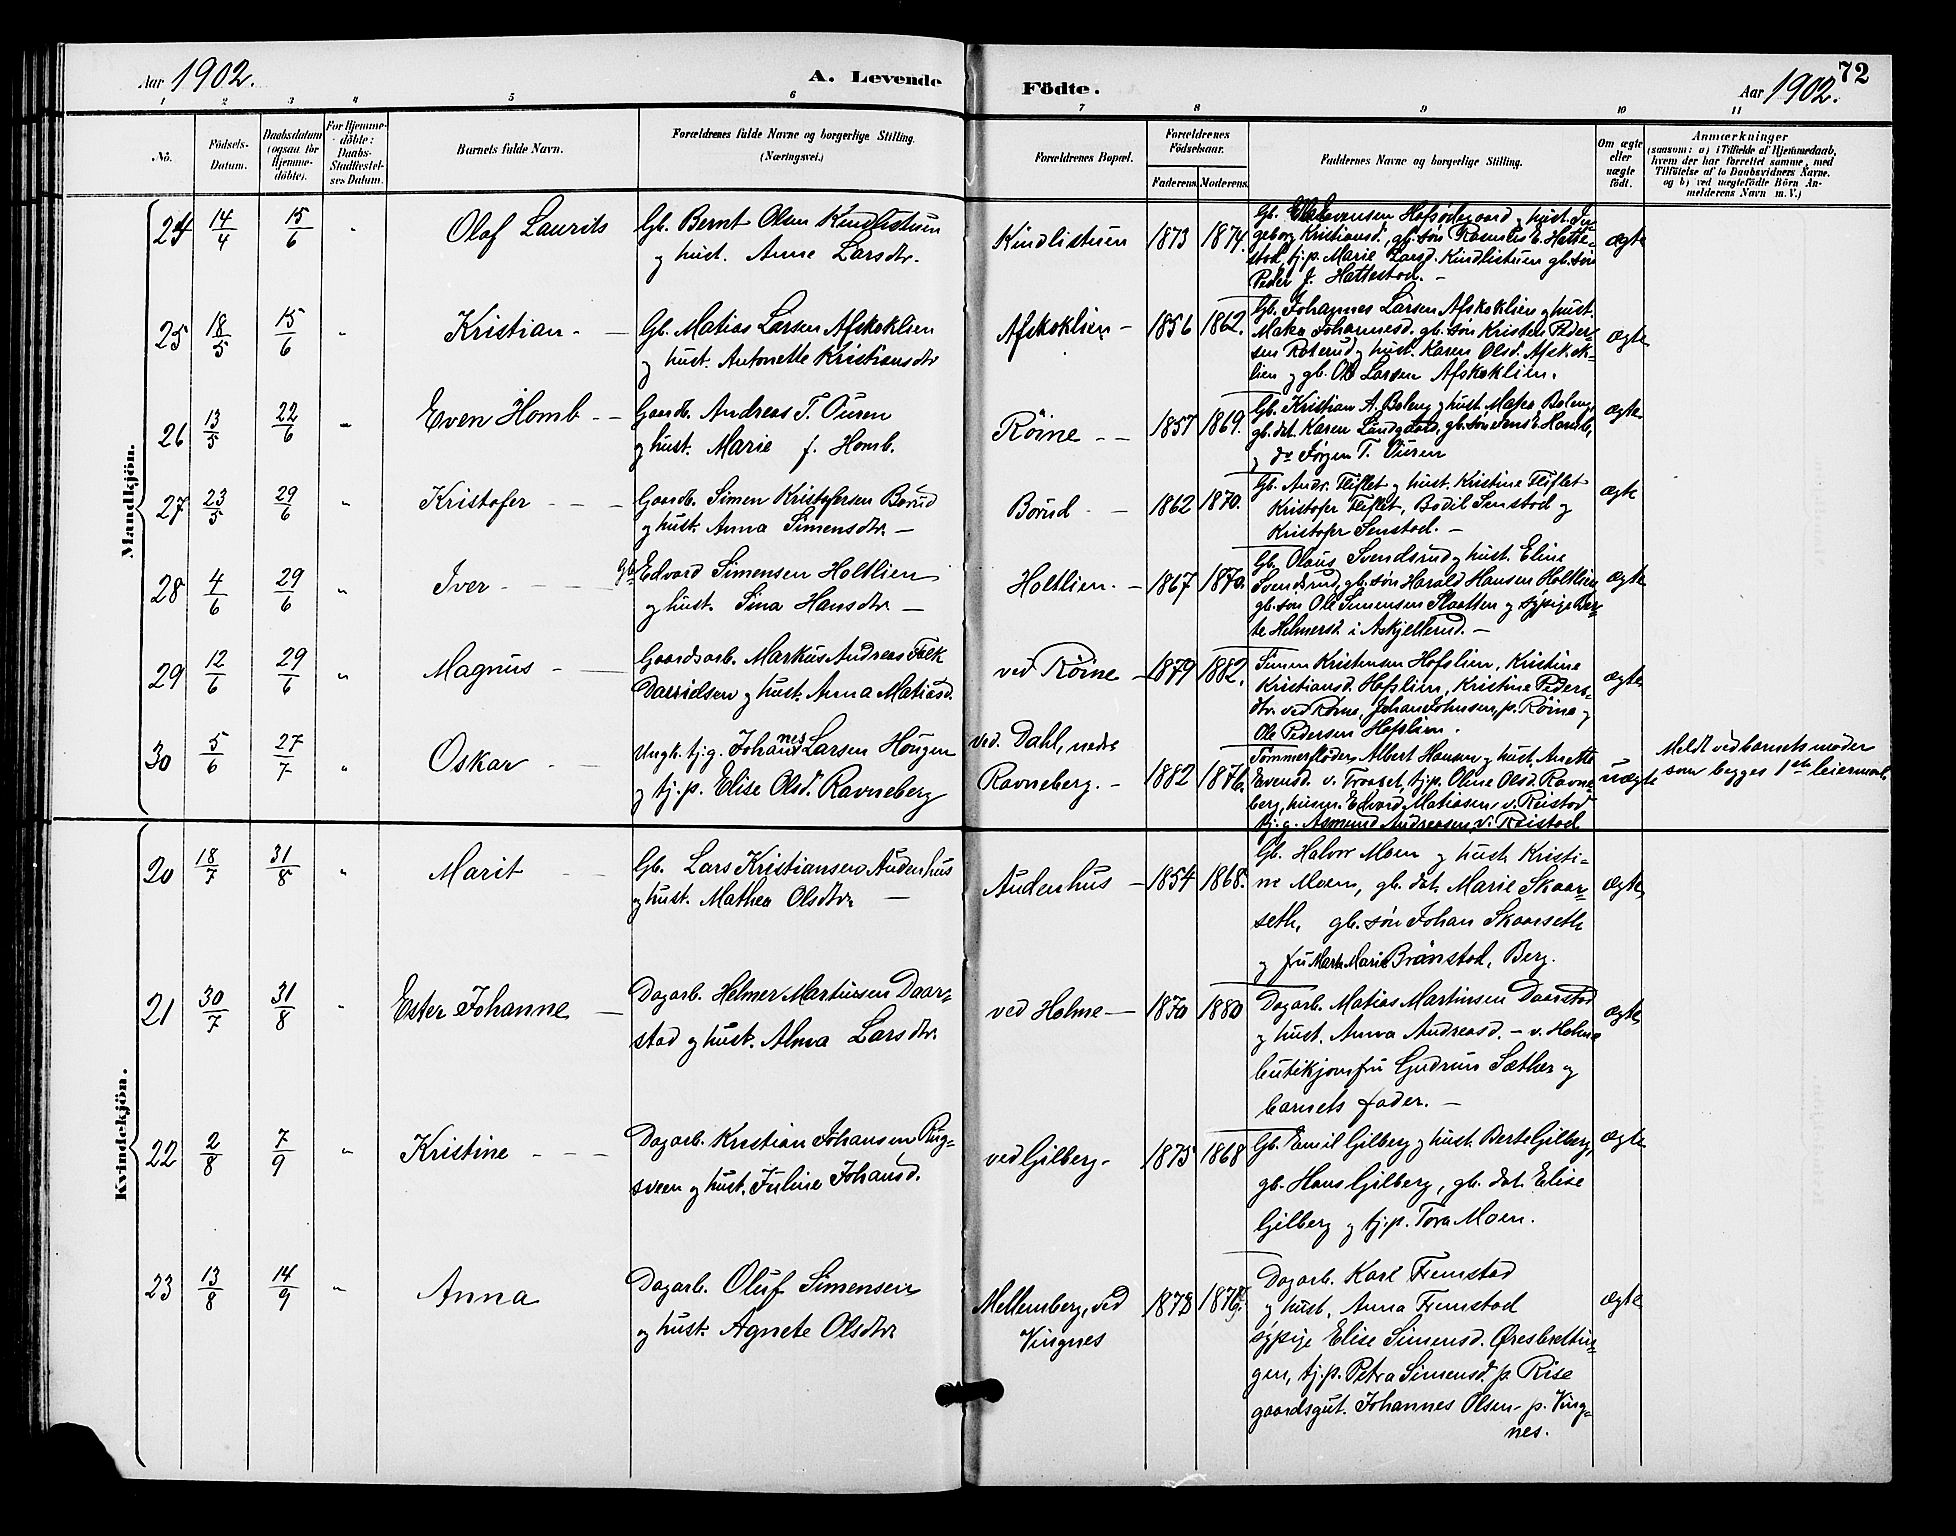 Aar 1902.
A. Levende
Födte.
Aar 1902.
72
1 2 3 4 5 6 7 8 9 10 11
No.
Födsels-
Datum.
Daabsdatum
(ogsaa for
Hjemme-
döbte).
For Hjemme-
döbte:
Daabs-
Stadfæstel-
ses Datum.
Barnets fulde Navn.
Forældrenes fulde Navne og borgerlige Stilling.
(Næringsvei.)
Forældrenes Bopæl.
Forældrenes
Födselsaar.
Faderens. Moderens.
Faddernes Navne og borgerlige Stilling.
Om ægte
eller
uægte
födt.
Anmærkninger
(saasom: a) i Tilfælde af Hjemmedaab,
hvem der har forrettet samme, med
Tilföielse af to Daabsvidners Navne,
og b) ved uægtefödte Börn An-
melderens Navn m. V.)
Mandkjön.
24 14/4 15/6 " Olaf Laurits
Gb. Bernt Olsen Kindlistuen
og hust. Anne Larsdtr.
Kindlistuen 1873 1874.
Gb. Evensen Hofsödegaard og hust. In-
geborg Kristiansd., gb. søn Rasmus E. Hatte-
stad, tj.p. Marie Larsd. Kindlistuen gb. søn
Peder J. Hattestad. –
ægte
25 18/5 15/6 " Kristian –
Gb. Matias Larsen Afskoklien
og hust. Antonette Kristiansdtr
Afskoklien – 1856 1862.
Gb. Johannes Larsen Afskoklien og hust.
Johannesd. gb. søn Kristen Peder-
sen Roterud og hust. Karen Olsd. Afskok-
lien og gb. Ole Larsen Afskoklien.
ægte
26 13/5 22/6 " Even Homb –
Gaardb. Andreas T. Ouren
og hust. Marie f. Homb.
Röine – – 1857 1869.
Gb. Kristian A. Boleng og hust. Boleng,
gb. dat. Karen Landgaard, gb. søn Jens E. Homb,
og do Jørgen T. Ouren
ægte
27 23/5 29/6 " Kristofer – – –
Gaardb. Simen Kristofersen Borud
og hust. Anna Simensdtr. –
Borud – – 1862 1870.
Gb. Andr. Fliflet og hust. Kristine Fliflet
Kristofer Fliflet, Bodil Senstad og
Kristofer Senstad. –
ægte
28 4/6 29/6 " Iver – – –
Gb. Edvard Simensen Holtlien
og hust. Sina Hansdtr. –
Holtlien. – 1867 1870.
Gb. Olaus Svendsrud og hust. Eline
Svendsrud, gb. søn Harald Hansen Holtlien
gb. søn Ole Simensen Slaatten og sypige Ber-
te Helmersd. i Askjellerud. –
ægte
29 12/6 29/6 " Magnus – –
Gaardsarb. Markus Andreas Falk
Davidsen og hust. Anna Matiasd.
ved Röine – 1879 1882.
Simen Kristensen Hofslien, Kristine
Kristiansd. Hofslien, Kristine Peders-
dtr. ved Röine, Johan Johnsen, p. Röine og
Ole Pedersen Hofslien.
ægte
30 5/6 27/7 " Oskar – –
Ungk. tj.g. Johannes Larsen Hougen
og tj.p. Elise Olsd. Ravneberg
ved. Dahl, nedre
Ravneberg. – 1882 1876.
Tömmerfløder Albert Hansen og hust. Anette
Evensd. v. Traaset, tj.p. Oline Olsd. Ravne-
berg, husm. Edvard Matiasen, v. Reistad
tj.g. Asmund Andreasen v. Reistad
uægte
Meldt ved barnets moder
som begges 1ste leiermaal.
Kvindekjön.
20 18/7 31/8 " Marit – –
Gb. Lars Kristiansen Audenhus
og hust. Mathea Olsdtr. –
Audenhus – 1854 1868.
Gb. Halvor Moen og hust. Kristi-
ne Moen, gb. dat. Marie Skaar-
seth, gb. søn Johan Skaarseth
og fru Marie Brönstad, Berg.
ægte
21 30/7 31/8 " Ester Johanne –
Dagarb. Helmer Martinsen Daar-
stad og hust. Alma Larsdtr.
ved Holme – 1870 1880
Dagarb. Matias Martinsen Daarstad
og hust. Anna Andreasd. – v. Holme
butikjomfru Gudrun Sæther og
barnets fader. –
ægte
22 2/8 7/9 " Kristine – – –
Dagarb. Kristian Johansen Rug-
sveen og hust. Juline Johansd.
ved Gilberg. – 1875 1868
Gb. Emil Gilberg og hust. Berte Gilberg,
gb. Hans Gilberg, gb. dat. Elise
Gilberg og tj.p. Tora Moen.
ægte
23 13/8 14/9 " Anna
Dagarb. Oluf Simensen
og hust. Agnete Olsdtr.
Mellemberg, ved
Vingnes 1878
Dagarb. Karl Fremstad
og hust. Anna Fremstad
sypige Elise Simensd. Øresbrettin-
gen, tj.p. Petra Simensd. p. Rise
gaardsgut. Johannes Olsen p. Ving-
nes.
ægte